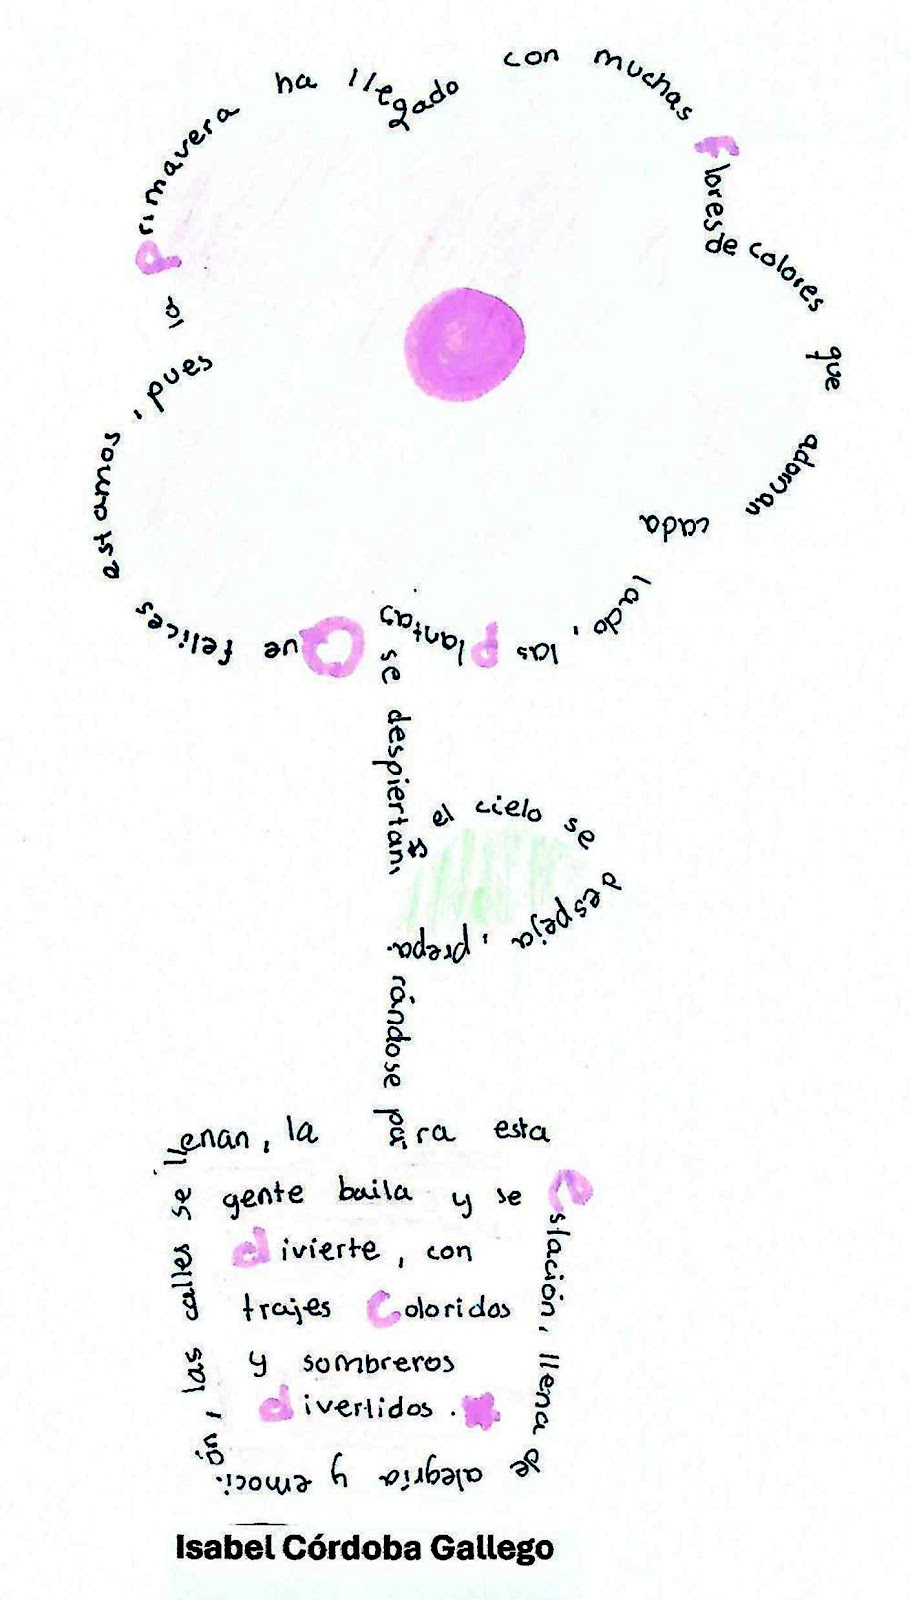 Que felices estamos, pues
la Primavera ha llegado con muchas
Flores de colores que adornan cada
lado, las Plantas
se despiertan,
y el cielo se despeja, prepa-
rándose para esta
estación, llena de
alegría y emoci-
ón, las calles se
llenan, la
gente baila y se
divierte, con
trajes Coloridos
y sombreros
divertidos.
Isabel Córdoba Gallego